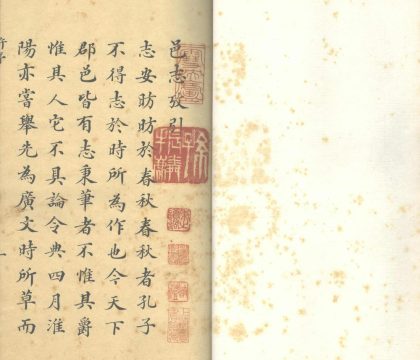 邑志攷引
志安昉昉於春秋春秋者孔子
不得志於時所為作也今天下
郡邑皆有志秉筆者不惟其爵
惟其人它不具論令典四月淮
陽亦嘗舉先為廣文時所草而